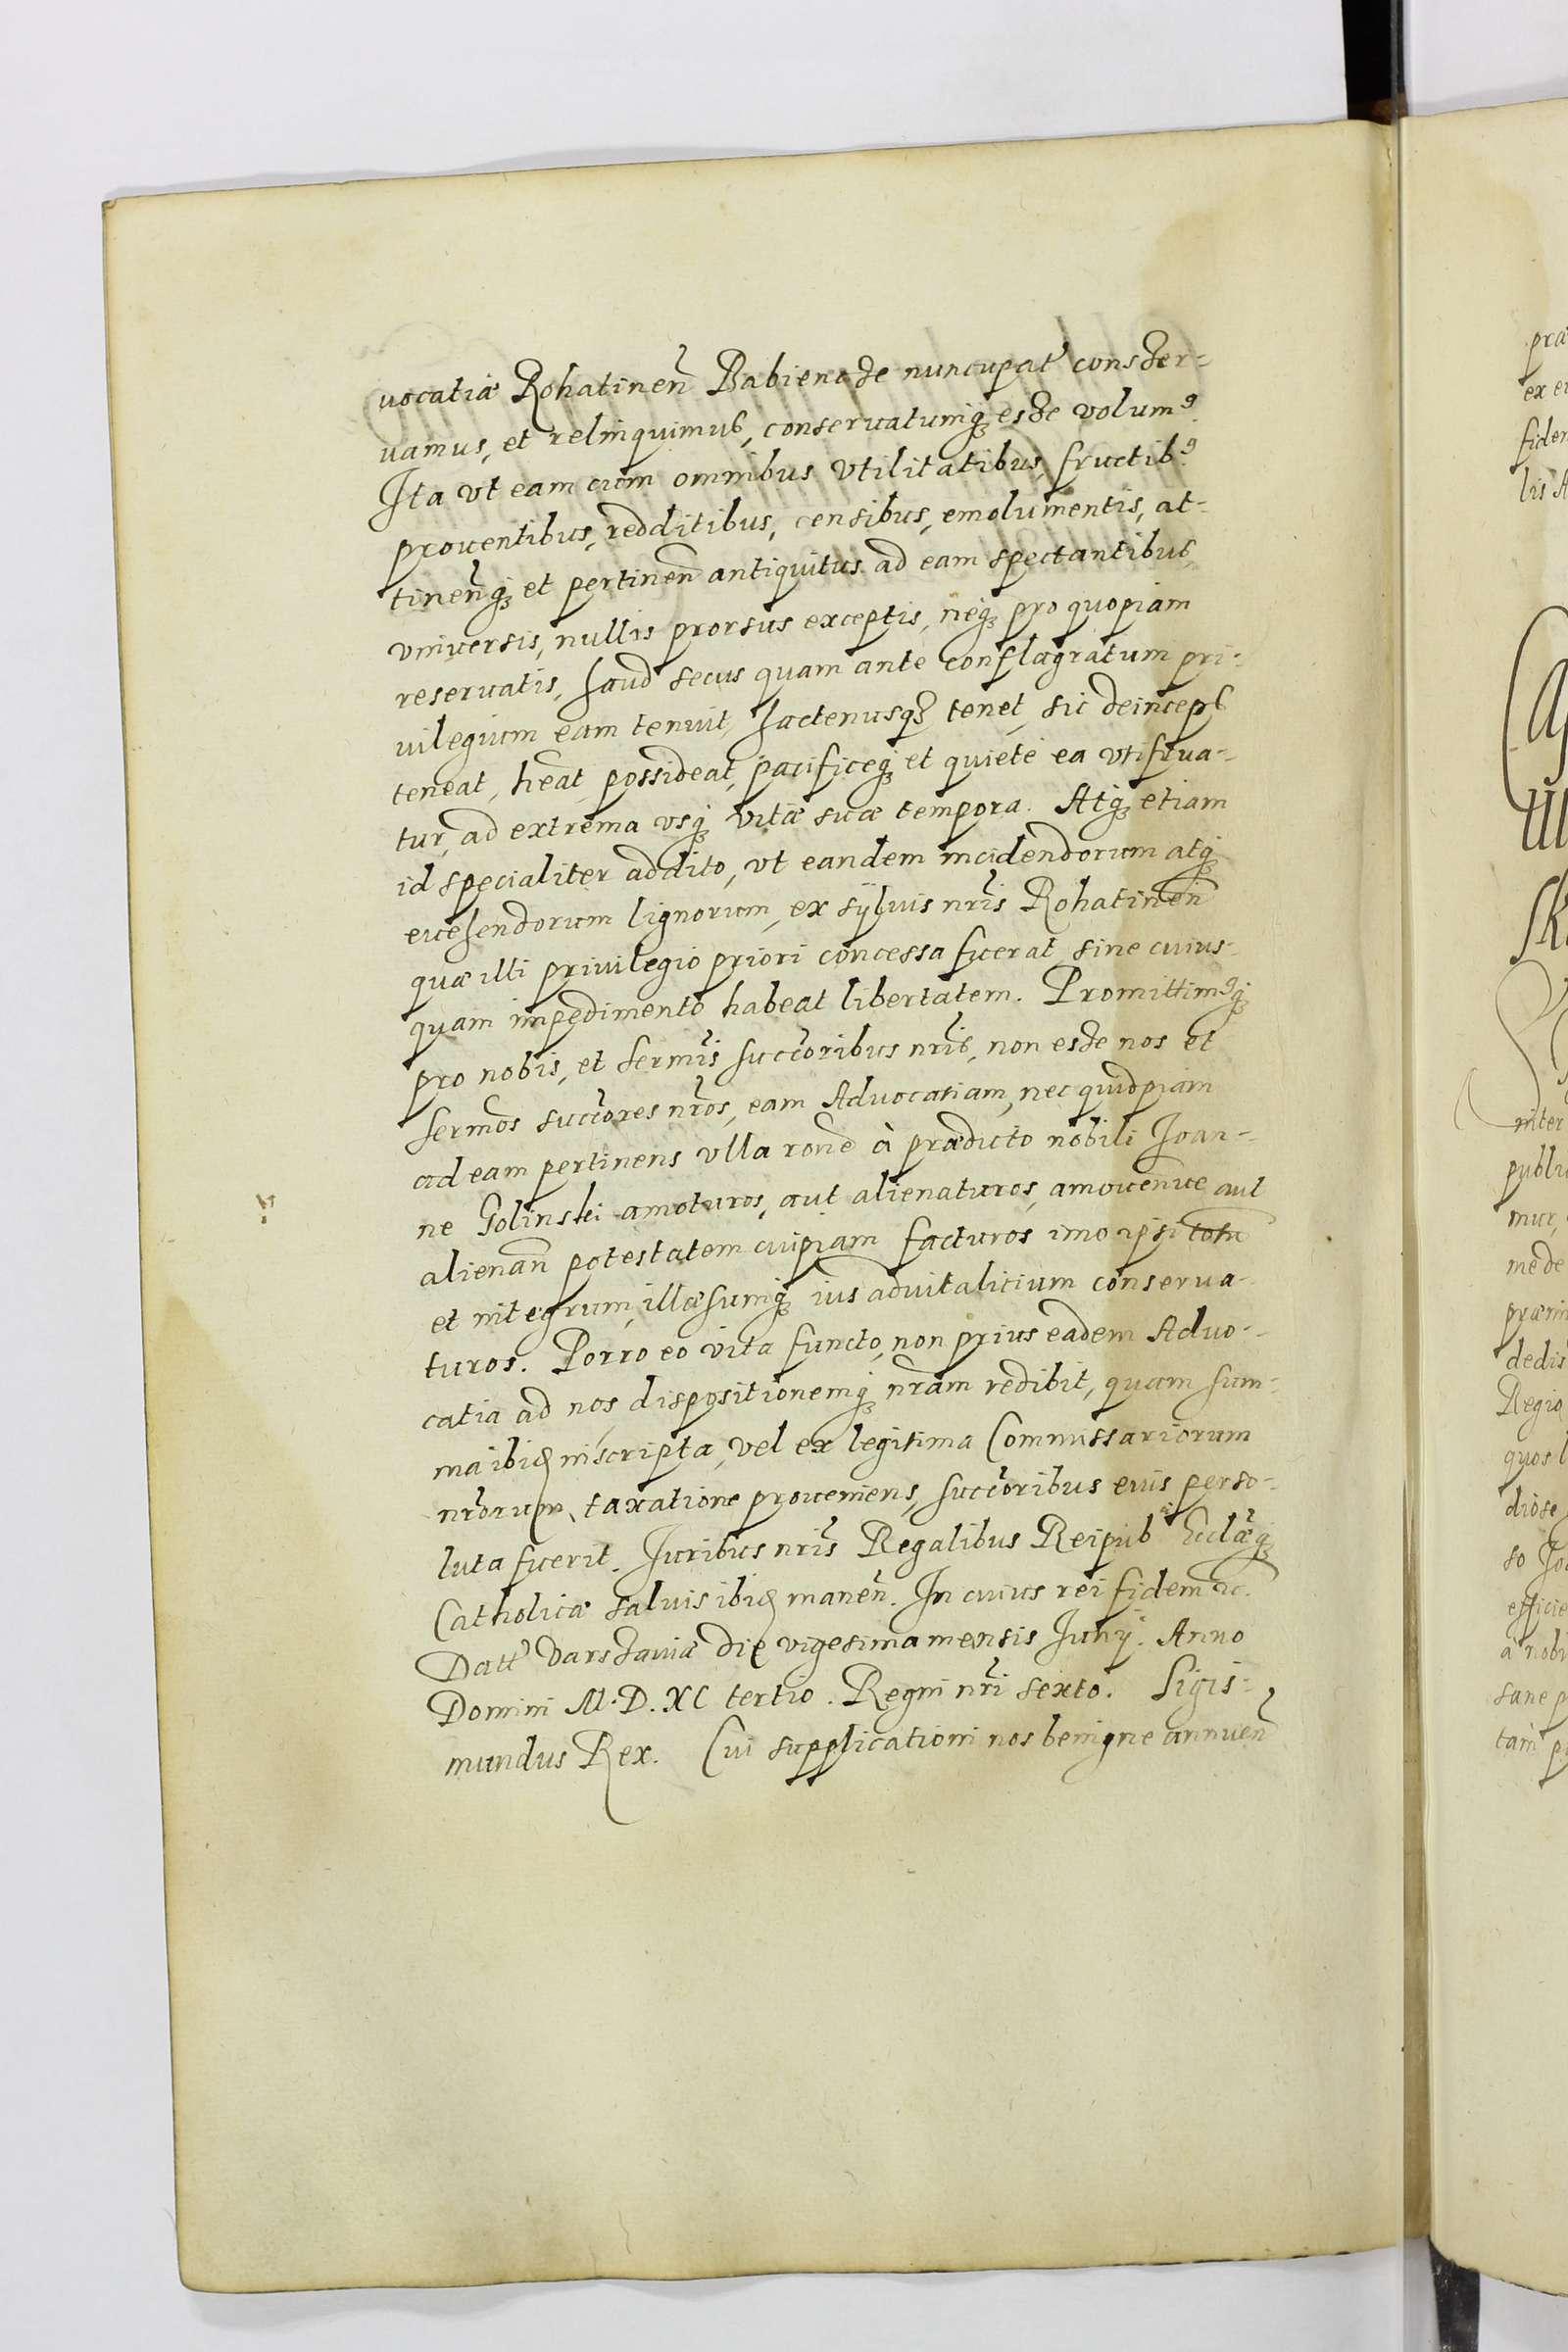 uocatiæ Rohatinen̄ Babienodze nuncupat' consser-
uamus, et relinquimus, conseruatumq; esse volum9
Ita vt eam cum omnibus vtilitatibus, fructib9
prouentibus, redditibus, censibus, emolumentis, at-
tinen̄q; et pertinen̄ antiquitus ad eam spectantibus,
vniuersis, nullis prorsus exceptis, neq; pro quopiam
reseruatis, haud secus quam ante conflagratum pri-
uilegium eam tenuit, hactenusq; tenet, sic deinceps
teneat, heat, possideat, pacificeq; et quiete ea vtifrua-
tur, ad extrema vsq; vitæ suæ tempora. Atq; etiam
id specialiter addito, vt eandem incidendorum atq;
euehendorum lignorum, ex syluis nris Rohatinen̄
quæ illi priuilegio priori concessa fuerat sine cuius-
quam impedimento habeat libertatem. Promittim9q;
pro nobis, et Sermis succoribus nris, non esse nos et
Sermos succores nros, eam Aduocatiam, nec quidpiam
ad eam pertinens vlla rone à prædicto nobili Joan-
ne Golinski amoturos, aut alienaturos, amouenue aut
alienan̄ potestatem cuipiam facturos imo ipsi
et integrum, illæsumq; ius aduitalitium conserua-
turos. Porro eo vita functo, non prius eadem Aduo-
catia ad nos dispositionemq; nram redibit, quam sum-
ma ibid inscripta, vel ex legitima Commissariorum
nrorum, taxatione proueniens, succoribus euis perso-
luta fuerit. Juribus nris Regalibus Reipub Ecclæq;
Catholicæ saluis ibid manen̄. In cuius rei fidem &c.
Datt' Varssauiæ die vigesima mensis Anno
Domini M.D.XC tertio. Regni nri sexto. Sigis-
mundus Rex. Cui supplicationi nos benigne annuen̄